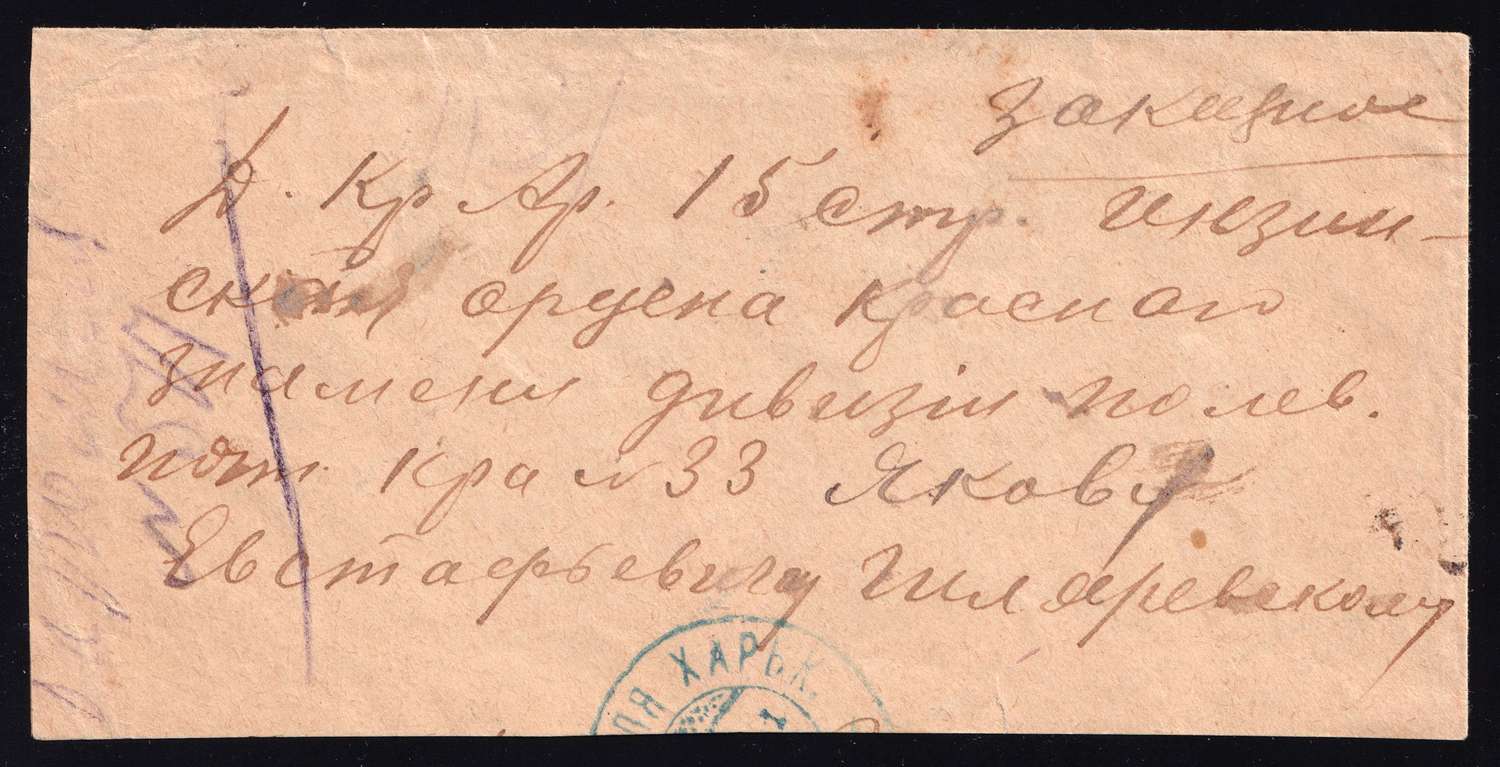 Заказное
Д. Кр Ар. 15 стр. Инзин-
ской ордена красного
знамени дивизіи полев.
почт. кра № 33 Якову
Евстафьевичу Гиляревскому
ХАРЬК.